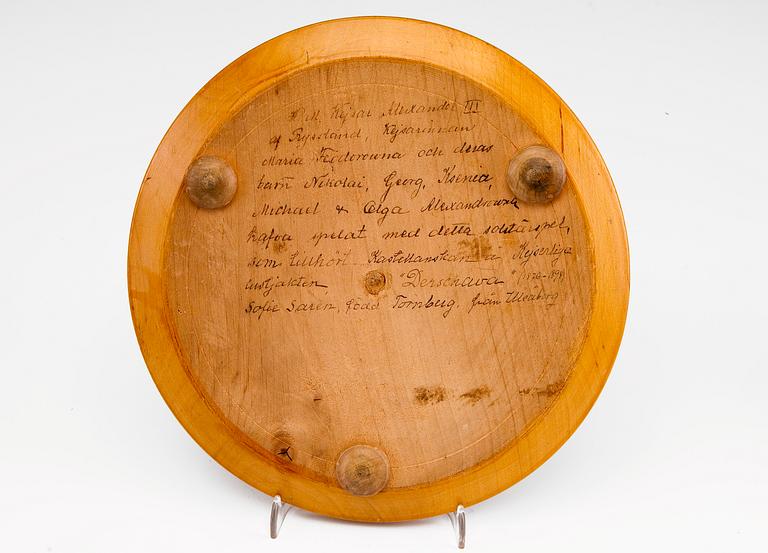 H.M. Kejsar Alexander III
af Ryssland, Kejsarinnan
Maria Feodorowna och deras
barn Nikolai, Georg, Ksenia,
Michael & Olga Alexandrowna
hafva spelat med detta solitärspel,
som tillhört Kastellanskan å Kejserliga
lustjakten "Derschava" (1876-1898)
Sofie Sarén, född Tornberg, från Uleåborg